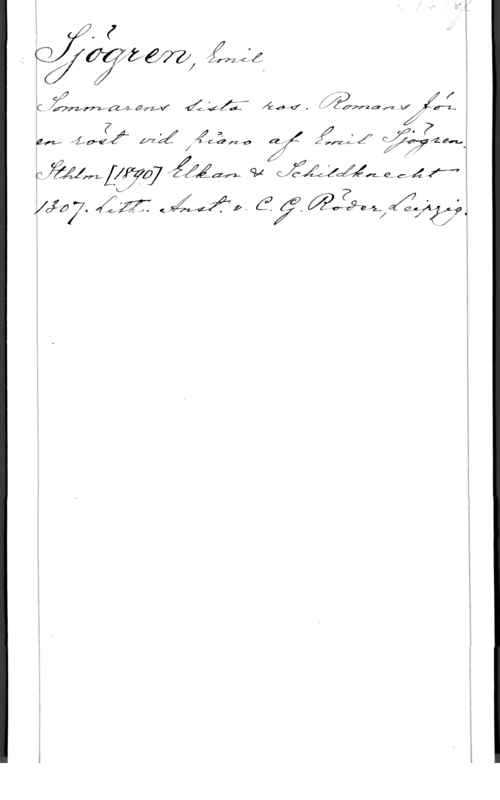 Sjögren, Emil
Sommarens sista ros. Romans för
en röst vid piano af Emil Sjögren.
Sthlm [1890] Elkan & Schildknecht
1307. Lith. Anst. v. C. G. Röder, Leipzig.